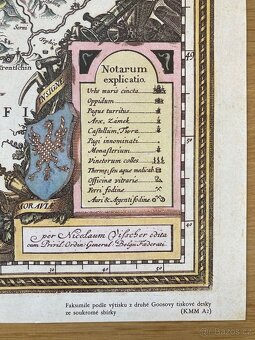 Trentschin
49
Notarum
explicatio.
Urbs muris cincta.
Oppidum
Pagus turritus
Arx, Zámek
Castellum, Tvrz
Pagi innominati
Monasterium
Vinetorum colles
Thermæ, sive aquæ medicatæ
Officinæ vitrariæ
Ferri fodinæ
Auri & Argenti fodinæ
INSIGNE
MORAVIÆ
per Nicolaum Visscher edita
cum Privil. Ordin. General. Belgii Fæderati
Faksimile podle výtisku z druhé Goosovy tiskové desky
ze soukromé sbírky
(KMM A2)